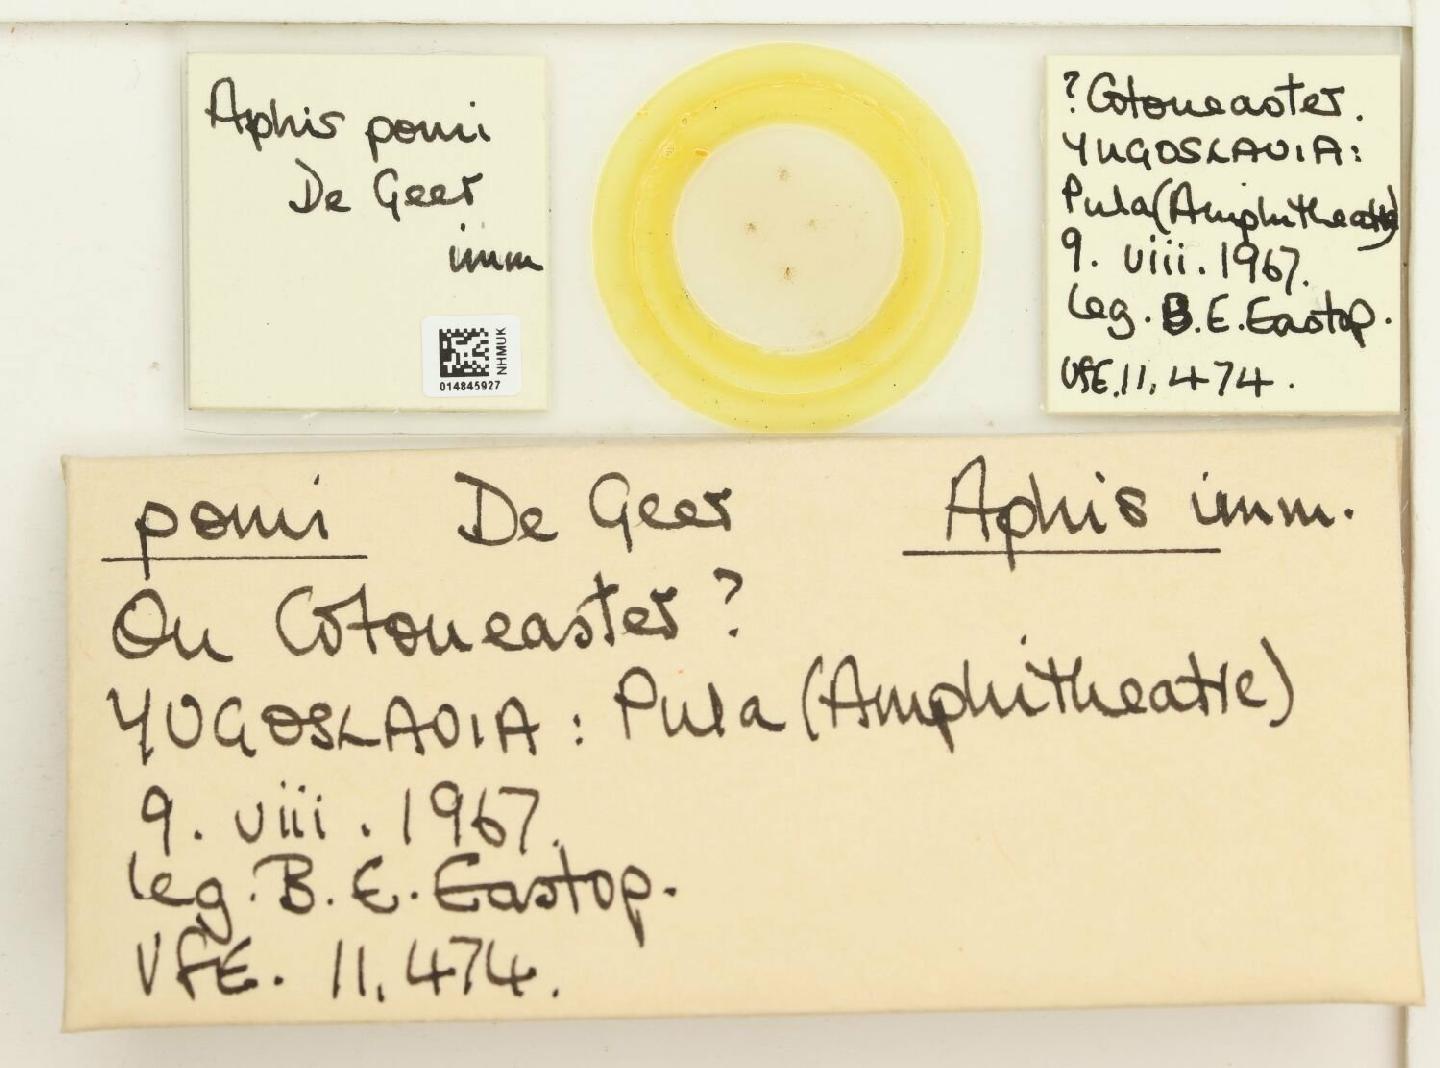 Aphis pomi
De Geer
imm
NHMUK
014845927
? Cotoneaster.
YUGOSLAVIA:
Pula (Amphitheatre)
9. viii. 1967.
leg. B. E. Eastop.
VfE. 11,474.
pomi De Geer Aphis imm.
On Cotoneaster?
YUGOSLAVIA: Pula (Amphitheatre)
9. viii. 1967.
leg. B. E. Eastop.
VfE. 11,474.